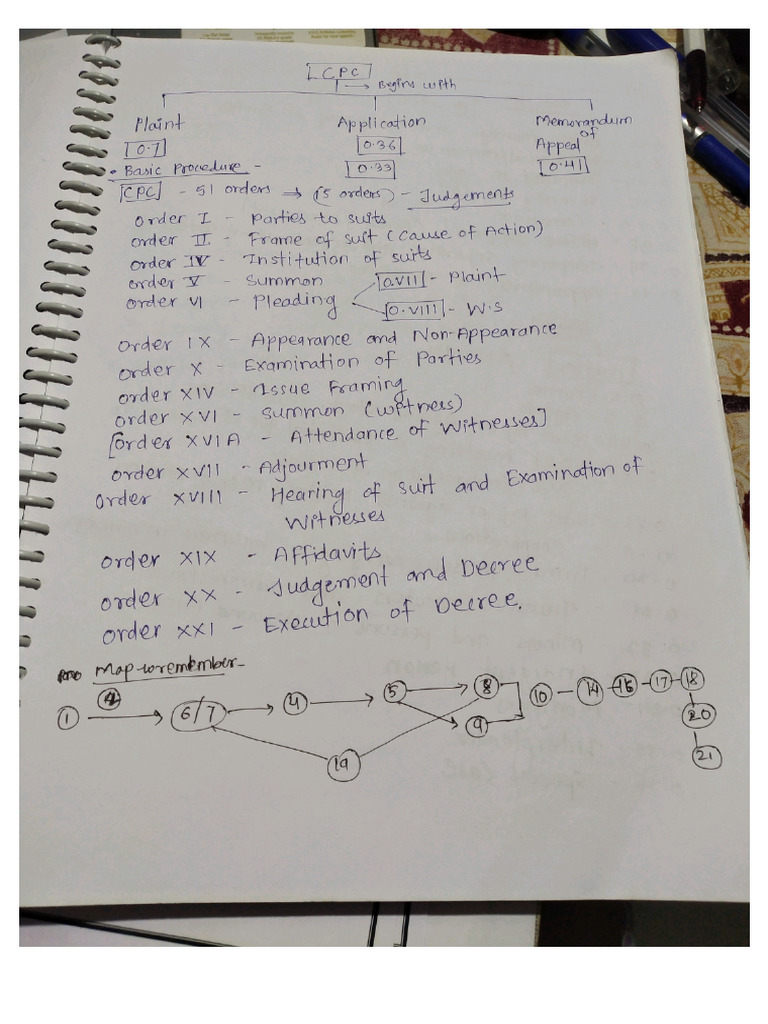 CPC
Begins with
Plaint Application Memorandum of Appeal
O.7 O.36 O.41
O.33
• Basic Procedure -
CPC - 51 orders → (5 orders) - Judgements
Order I - Parties to suits
Order II - Frame of suit (Cause of Action)
Order IV - Institution of suits
Order V - Summon
Order VI - Pleading
O.VII - Plaint
O.VIII - W.S
Order IX - Appearance and Non-Appearance
Order X - Examination of Parties
Order XIV - Issue Framing
Order XVI - Summon (Witness)
[Order XVI A - Attendance of Witnesses]
Order XVII - Adjourment
Order XVIII - Hearing of suit and Examination of
Witnesses
Order XIX - Affidavits
Order XX - Judgement and Decree
Order XXI - Execution of Decree.
Map to remember -
1 2 6/7 4 5 8 10 14 16 17 18
9 20
19 21